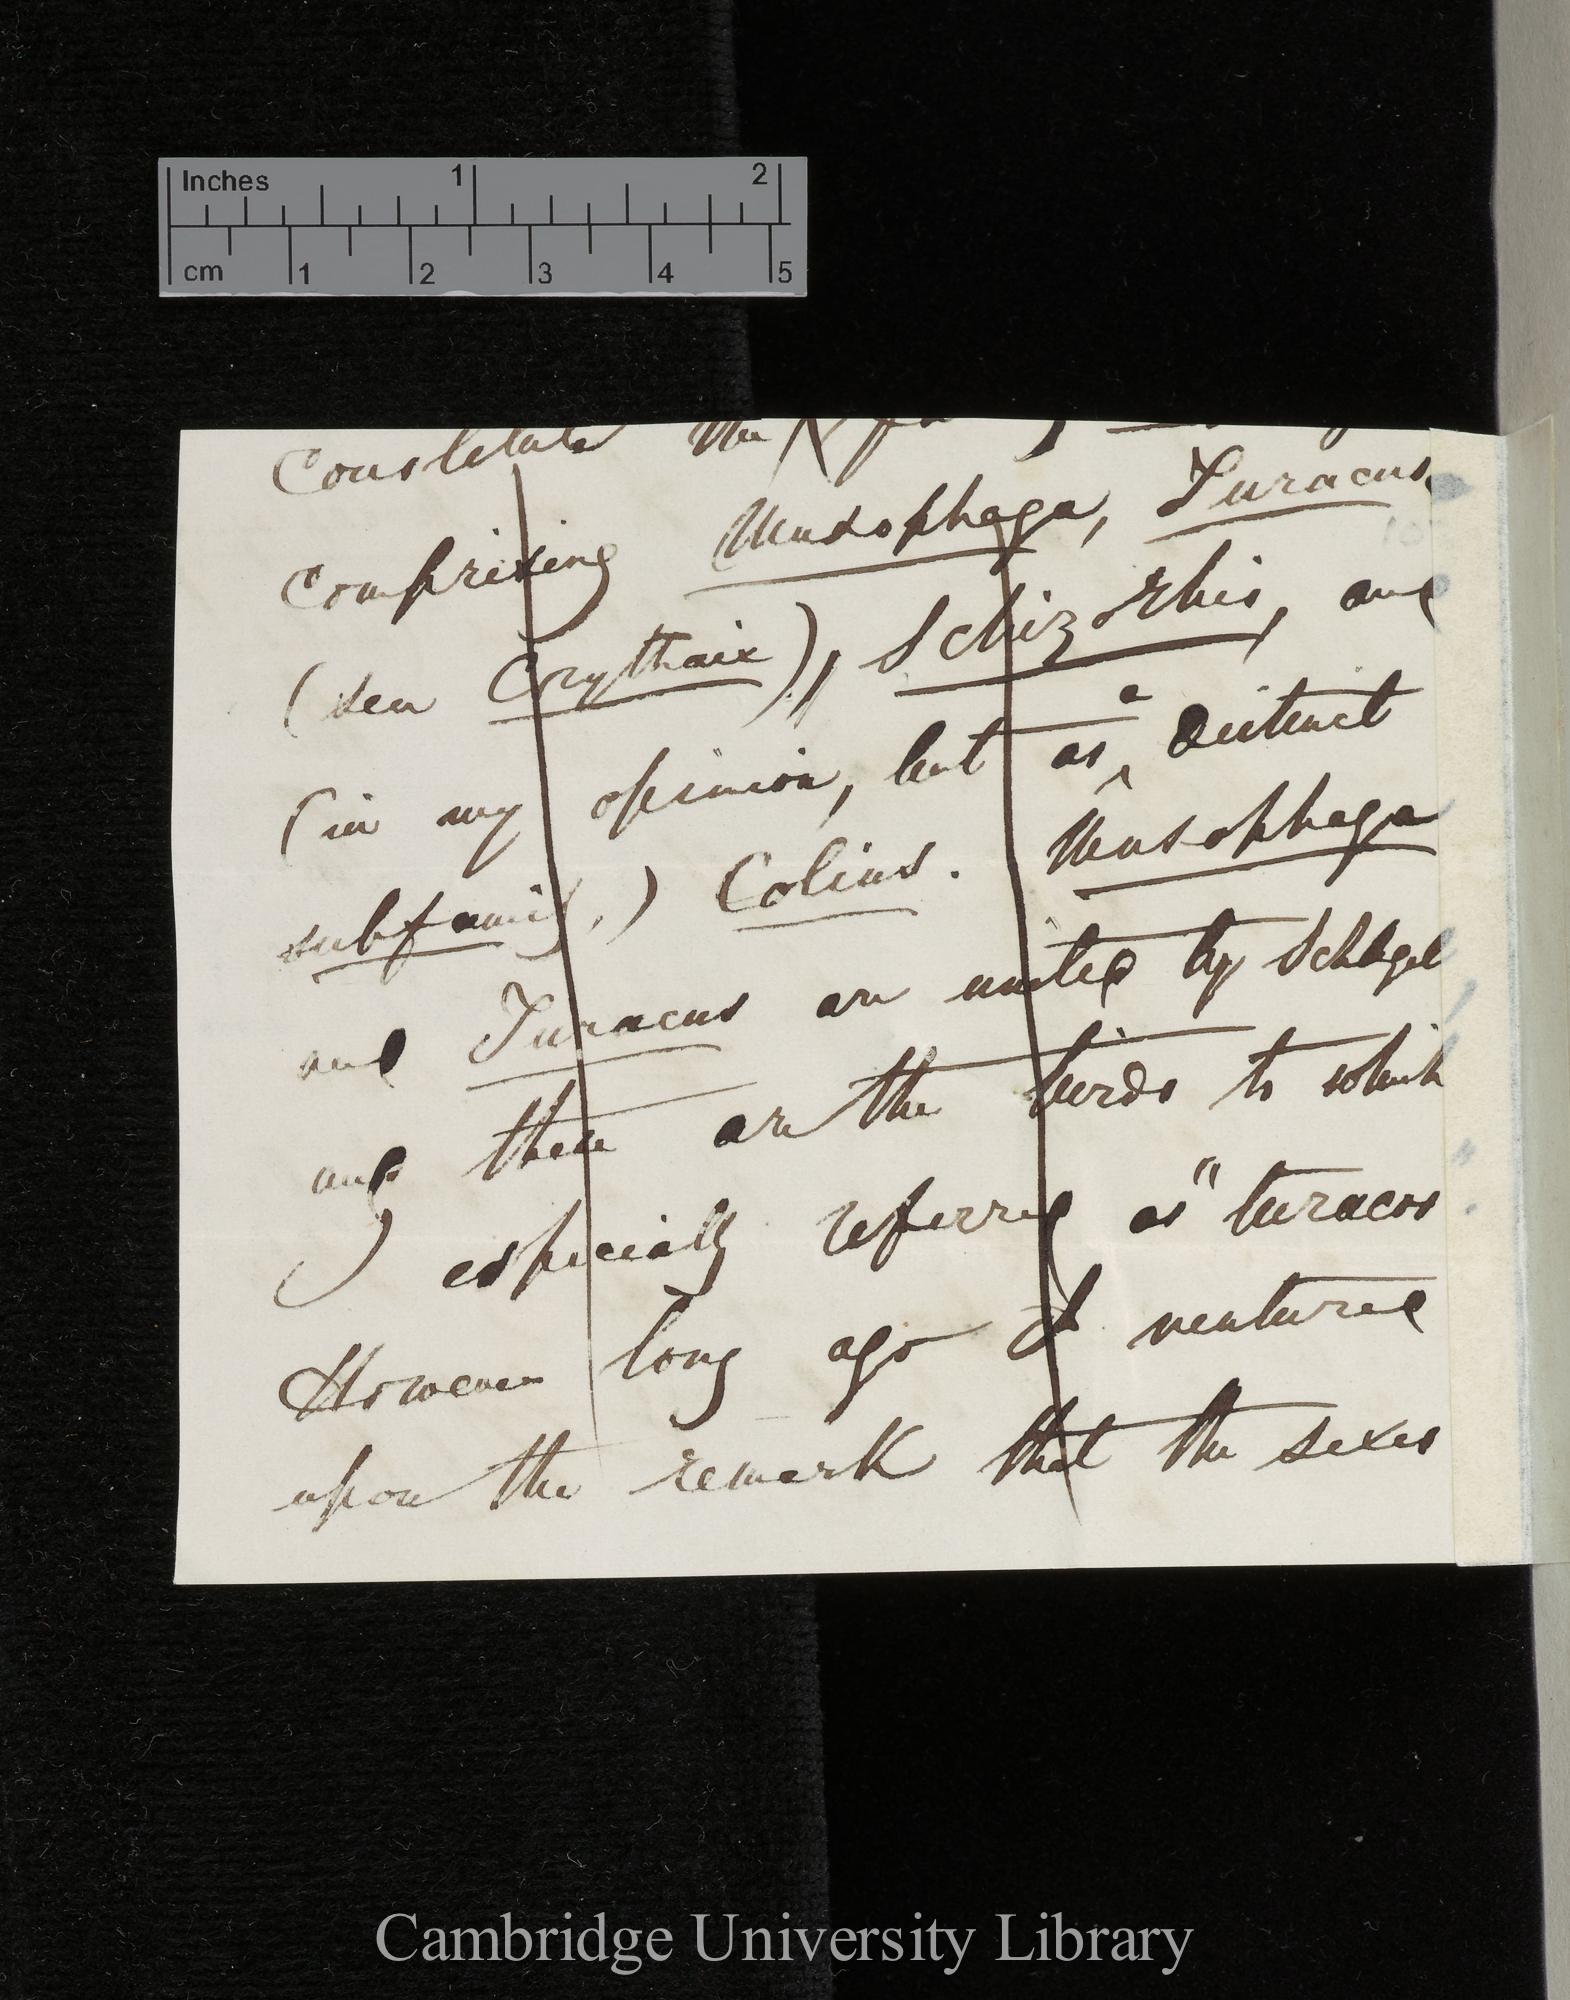 Inches 1 2
cm 1 2 3 4 5
Constitute the
comprising Musophaga, Turacus
(seu Corythaix), Schizorhis, and
(in my opinion, but as a distinct
subfamily,) Colius. Musophaga
and Turacus are united by Schlegel
and these are the birds to which
I especially referred as "turacos
However long ago I ventured
upon the remark that the sexes
Cambridge University Library